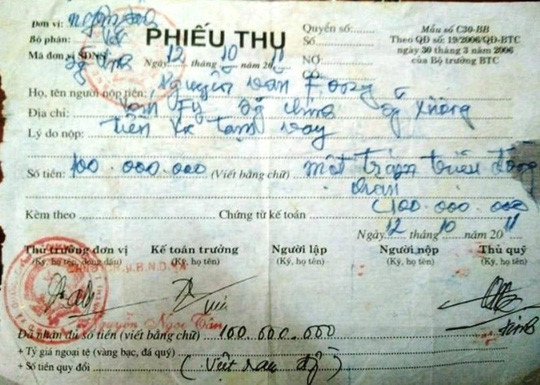 Đơn vị: ngân sách
Bộ phận: xã
Mã đơn vị SDNS:
PHIẾU THU
Ngày 12 tháng 10 năm 2011
Quyển số:
Số
NỢ:
CÓ
Mẫu số C30-BB
Theo QĐ số: 19/2006/QĐ-BTC
ngày 30 tháng 3 năm 2006
của Bộ trưởng BTC
Họ, tên người nộp tiền: Nguyễn Văn
Địa chỉ:
Lý do nộp: tiền xã tạm vay
Số tiền: 100.000.000 (Viết bằng chữ) một trăm triệu đồng
chẵn
(100.000.000
Kèm theo Chứng từ kế toán
Ngày 12 tháng 10 năm 2011
Thủ trưởng đơn vị Kế toán trưởng Người lập Người nộp Thủ quỹ
(Ký, họ tên, đóng dấu) (Ký, họ tên) (Ký, họ tên) (Ký, họ tên) (Ký, họ tên)
Nguyễn Ngọc Tân
Đã nhận đủ số tiền (viết bằng chữ) 100.000.000
+ Tỷ giá ngoại tệ (vàng bạc, đá quý)
+ Số tiền quy đổi